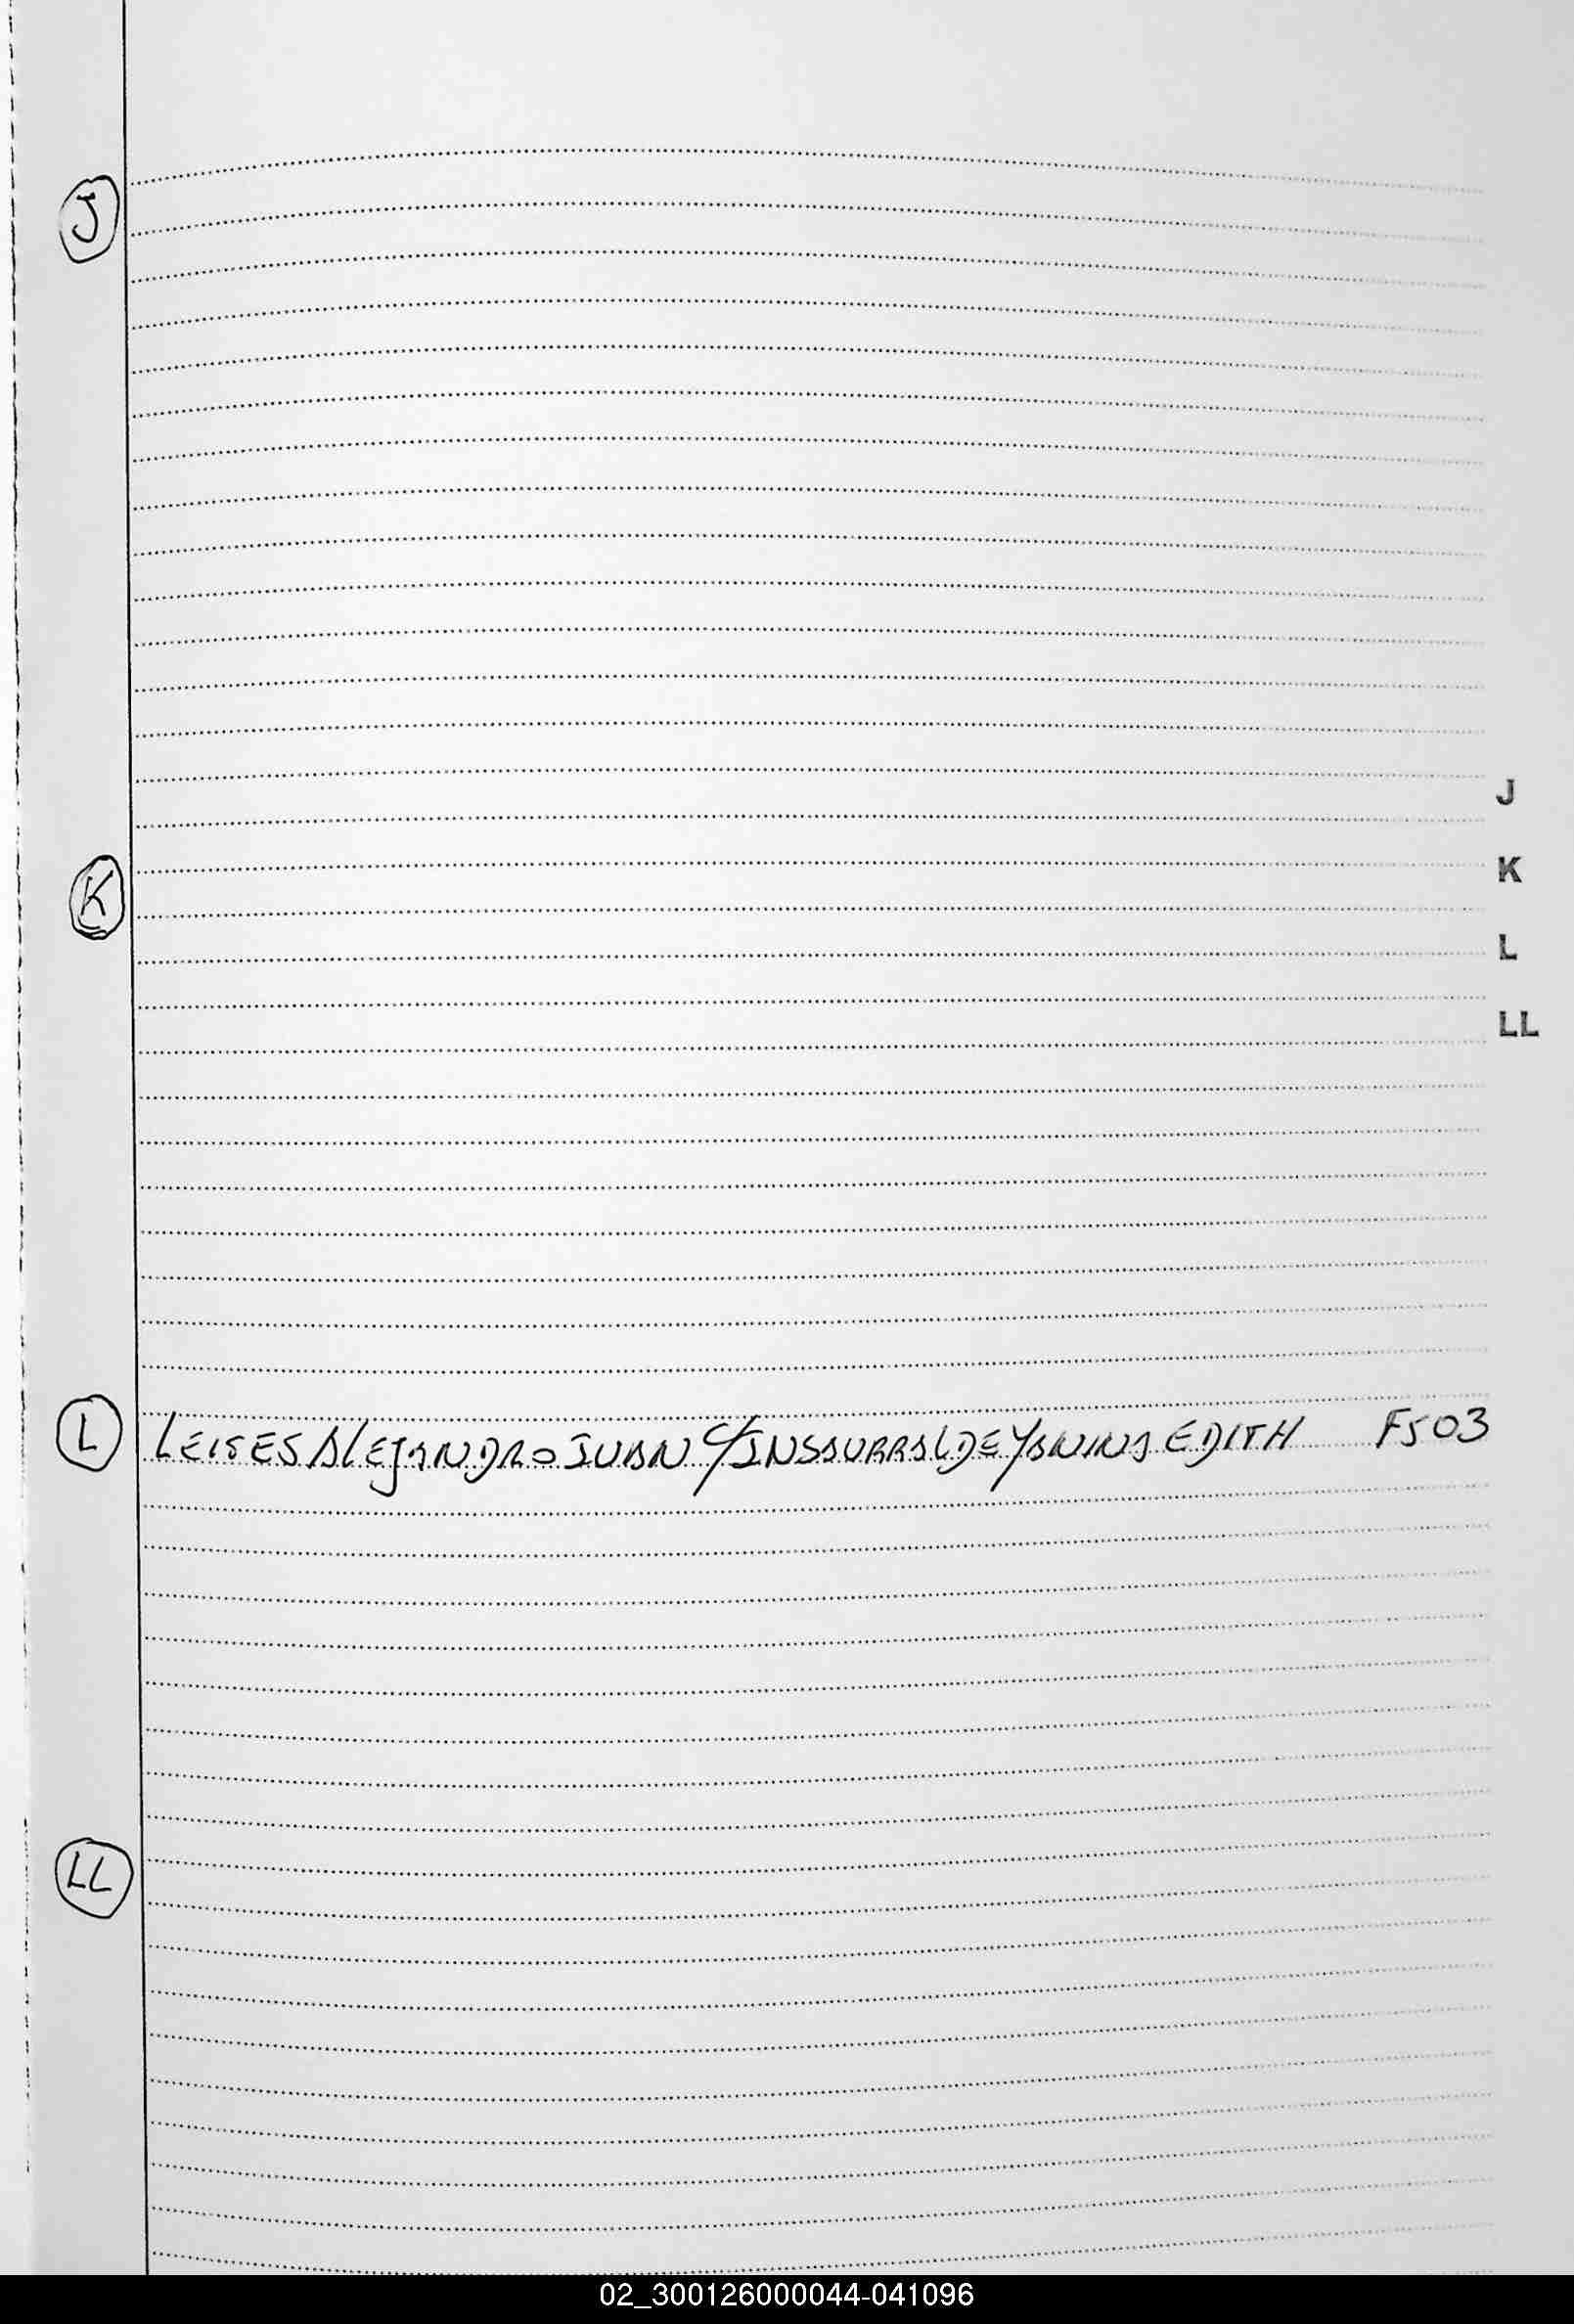 J
J
K
K
L
LL
L LEISES ALEJANDRO JUAN C/ INSAURRALDE YANINA EDITH FS 03
LL
02_300126000044-041096